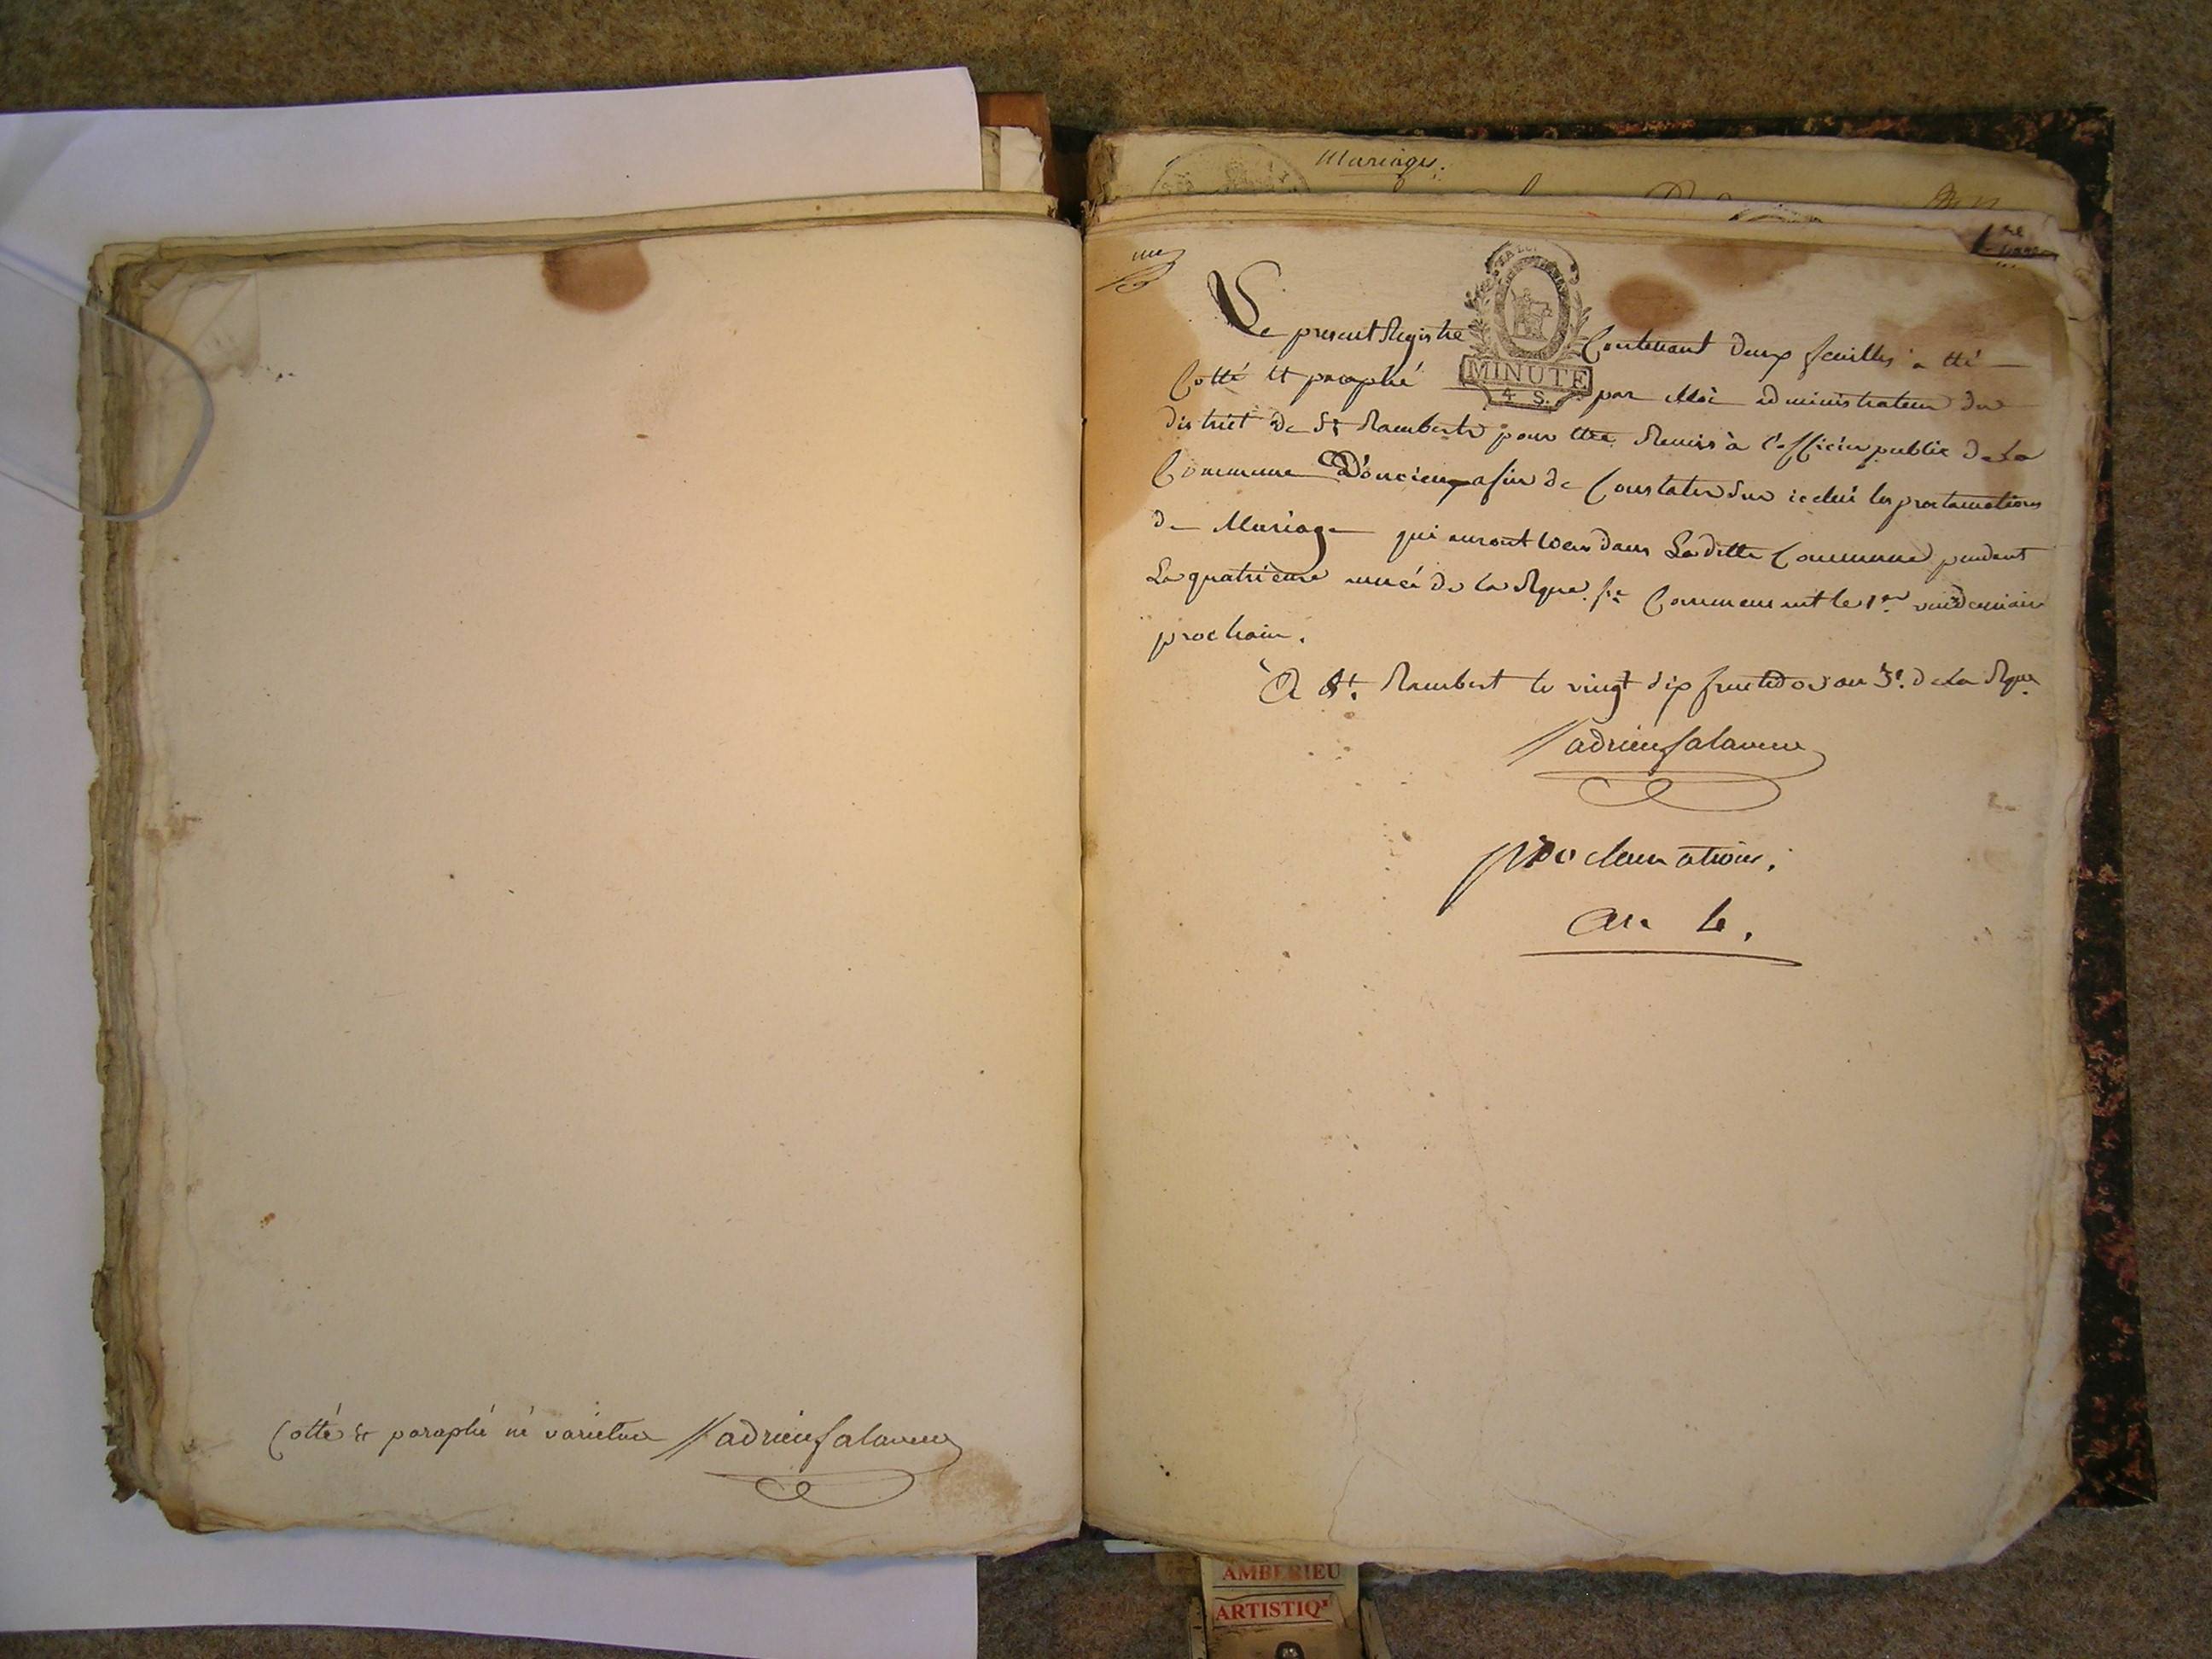 Cotté & paraphé né varietur adrien Salaveuve
Mariages.
1re
Le present Registre Contenant deux feuilles a été
Cotté et paraphé par Moi administrateur du
district de St Rambert pour etre Remis à l'officier public de La
Commune D'oncieu afin de Constater sur icelui les proclamations
de Mariage qui auront lieu dans Laditte Commune pendant
La quatrieme année de la Rque fse Commencent le 1er vendemiaire
prochain.
A St. Rambert le vingt six fructidor an 3e. de La Rque
MINUTE
4 S.
proclamations.
an 4.
AMBERIEU
ARTISTIQ